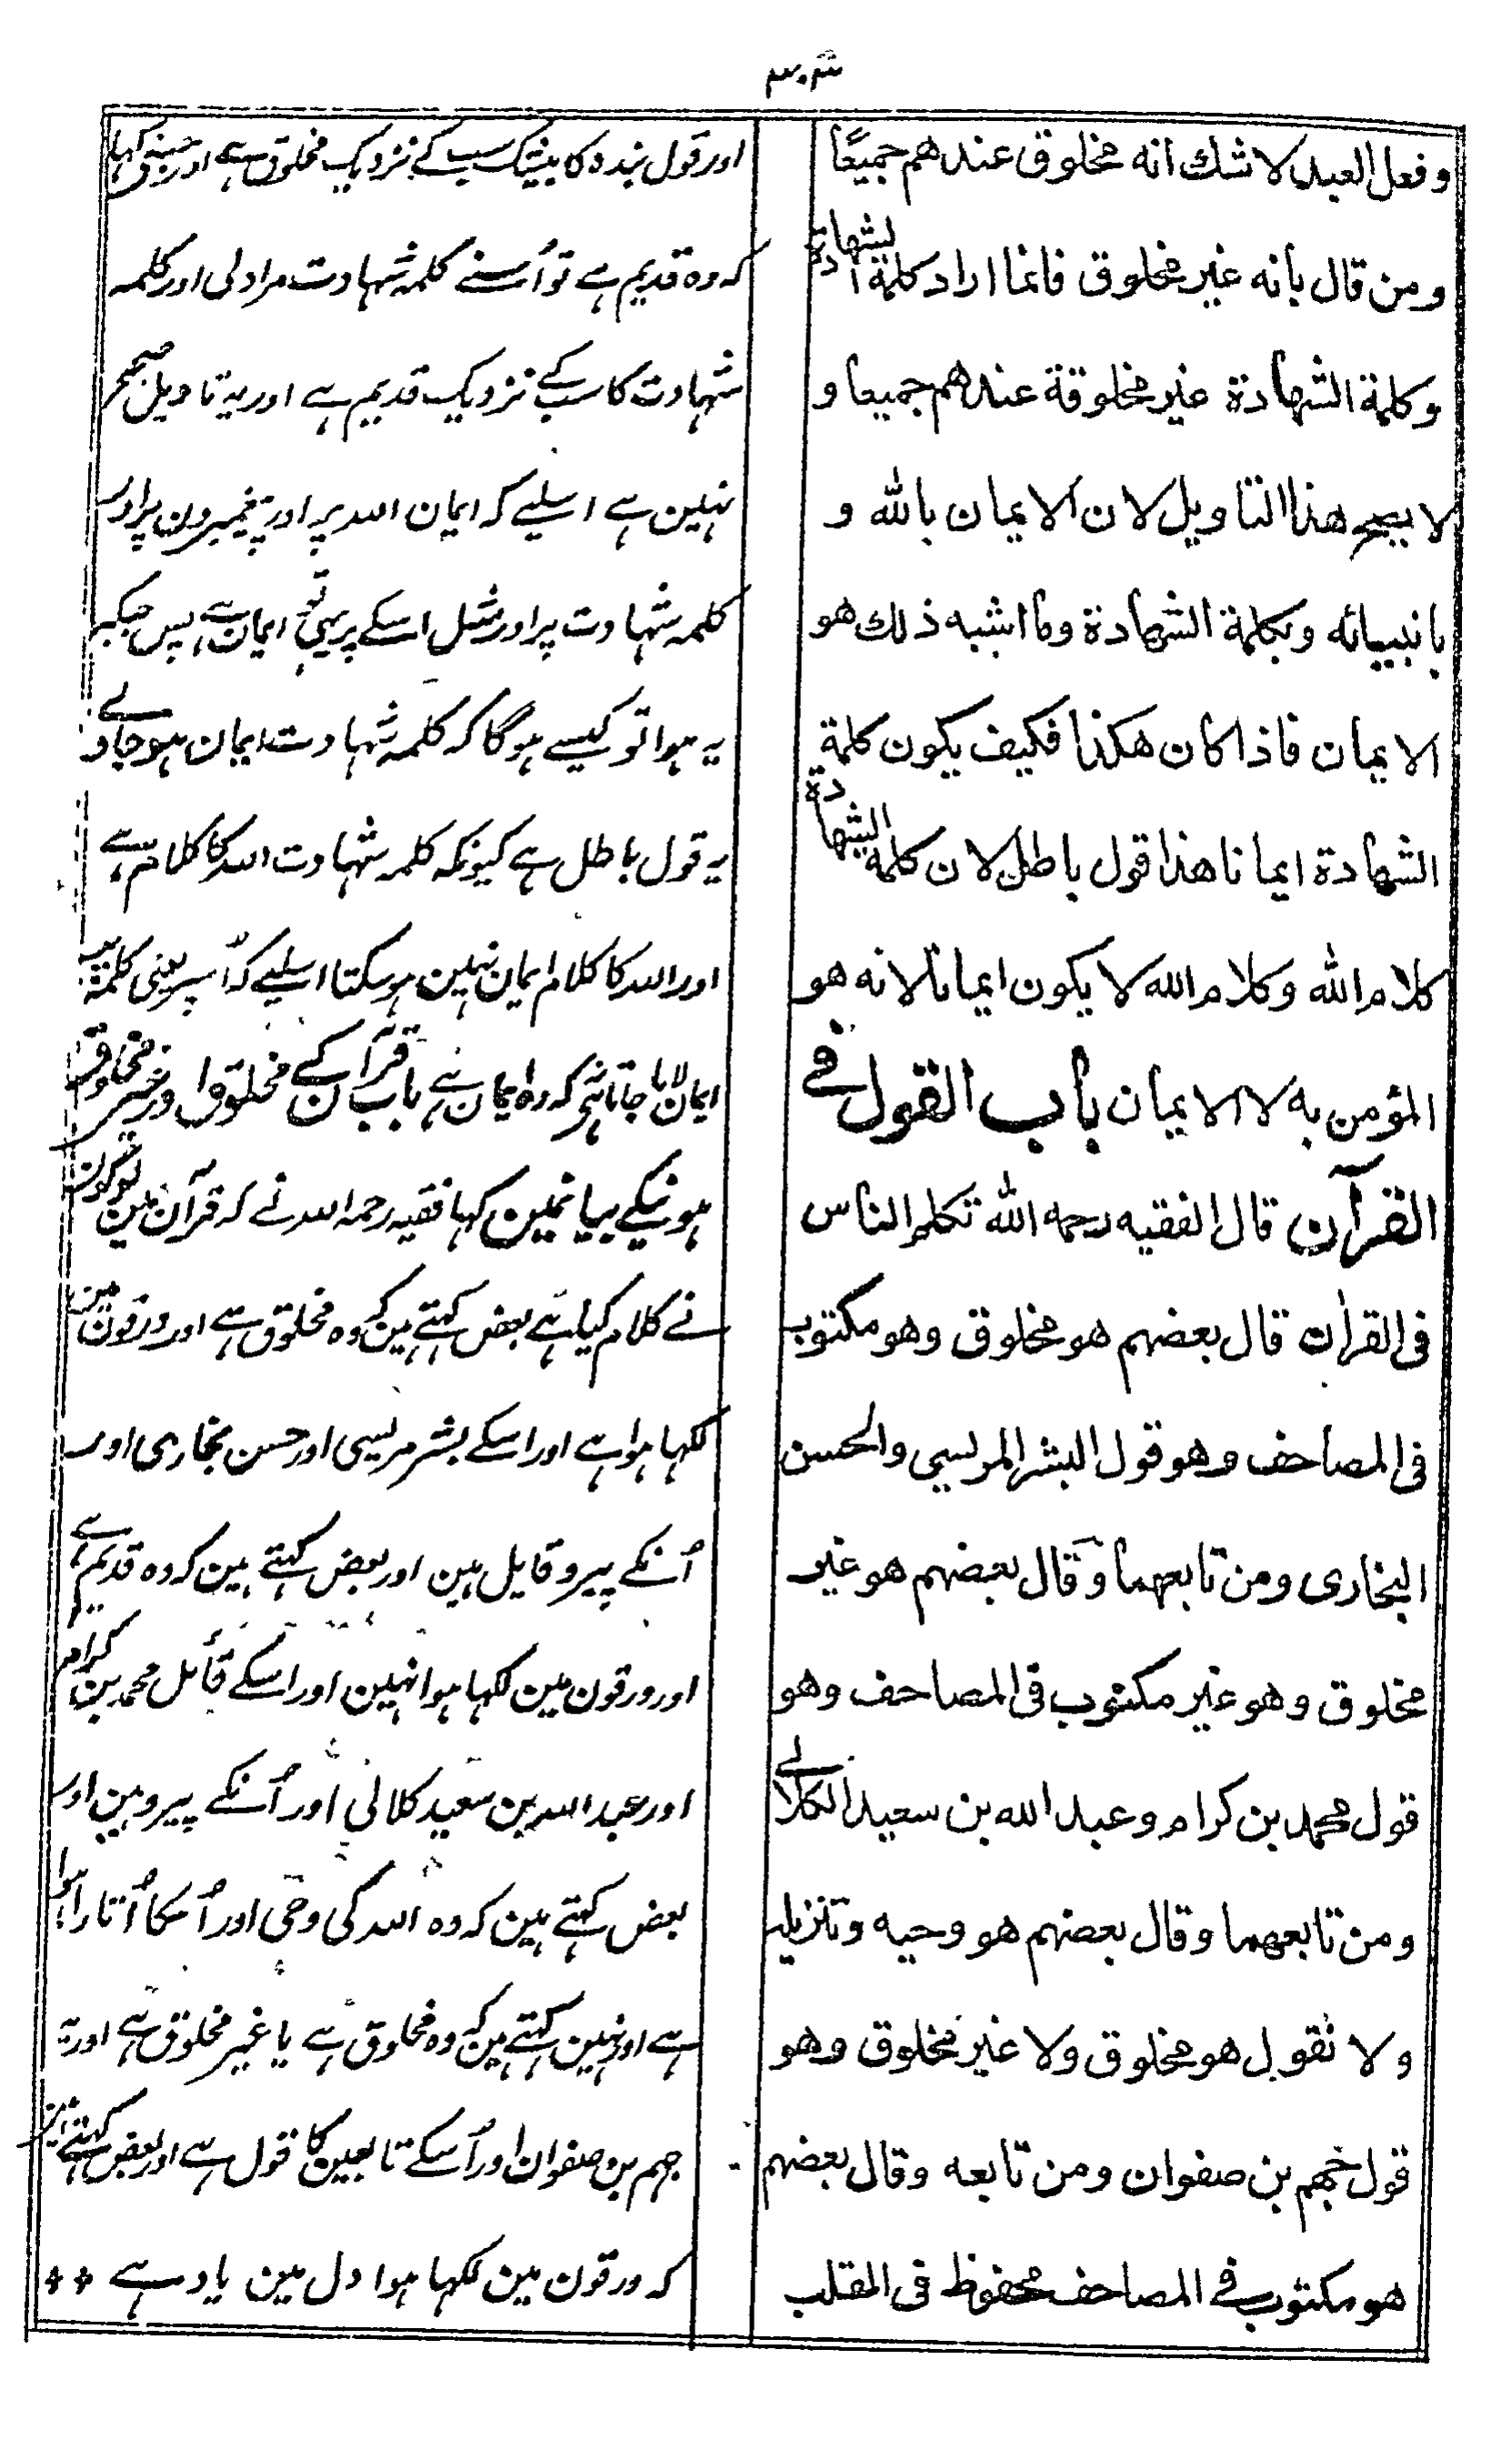 ۳۰۳
وفعل العبد لا شك انه مخلوق عندهم جميعًا
ومن قال بانه غير مخلوق فانما اراد كلمة الشهادة
وكلمة الشهادة غير مخلوقة عندهم جميعا و
لا يصح هذا التاويل لان الايمان بالله و
بانبيائه وبكلمة الشهادة وما اشبه ذلك هو
الايمان فاذا كان هكذا فكيف يكون كلمة
الشهادة ايمانا هذا قول باطل لان كلمة الشهادة
كلام الله وكلام الله لا يكون ايمانا لانه هو
المؤمن به لا الايمان باب القول في
القرآن قال الفقيه رحمه الله تكلم الناس
فى القران قال بعضهم هو مخلوق وهو مكتوب
فى المصاحف وهو قول البشر المريسي والحسن
البخارى ومن تابعهما وقال بعضهم هو غير
مخلوق وهو غير مكتوب فى المصاحف وهو
قول محمد بن كرام وعبد الله بن سعيد الكلالے
ومن تابعهما وقال بعضهم هو وحيه وتنزيله
ولا نقول هو مخلوق ولا غير مخلوق وهو
قول جهم بن صفوان ومن تابعه وقال بعضهم
هو مكتوب في المصاحف محفوظ فى القلب
اور قول بندہ کا بیشک سب کے نزدیک مخلوق ہے اور جسنے کہا
کہ وہ قدیم ہے تو اُسنے کلمہ شہادت مراد لی اور کلمہ
شہادت کا سب کے نزدیک قدیم ہے اور یہ تاویل صحیح
نہین ہے اسلیے کہ ایمان اللہ پر اور پیغمبرون پر اور
کلمہ شہادت پر اور مثل اسکے پر یہی تو ایمان ہے پس جبکہ
یہ ہوا تو کیسے ہوگا کہ کلمہ شہادت ایمان ہو جاوے
یہ قول باطل ہے کیونکہ کلمہ شہادت اللہ کا کلام ہے
اور اللہ کا کلام ایمان نہین ہو سکتا اسلیے کہ اُسپر یعنی کلمہ پر
ایمان لایا جاتا ہے نہ کہ وہ ایمان ہے باب قرآن کے مخلوق اور غیر مخلوق
ہونیکے بیانمین کہا فقیہ رحمہ اللہ نے کہ قرآن مین لوگون
نے کلام کیا ہے بعض کہتے ہین کہ وہ مخلوق ہے اور ورقون مین
لکہا ہوا ہے اور اسکے بشر مریسی اور حسن بخاری اور
اُنکے پیرو قایل ہین اور بعض کہتے ہین کہ وہ قدیم ہے
اور ورقون مین لکہا ہوا نہین اور اسکے قائل محمد بن کرام
اور عبد اللہ بن سعید کلالی اور اُنکے پیرو ہین اور
بعض کہتے ہین کہ وہ اللہ کی وحی اور اُسکا اُتارا ہوا
ہے اور نہین کہتے ہین کہ وہ مخلوق ہے یا غیر مخلوق ہے اور یہ
جہم بن صفوان اور اُسکے تابعین کا قول ہے اور بعض کہتے ہین
کہ ورقون مین لکہا ہوا دل مین یاد ہے **